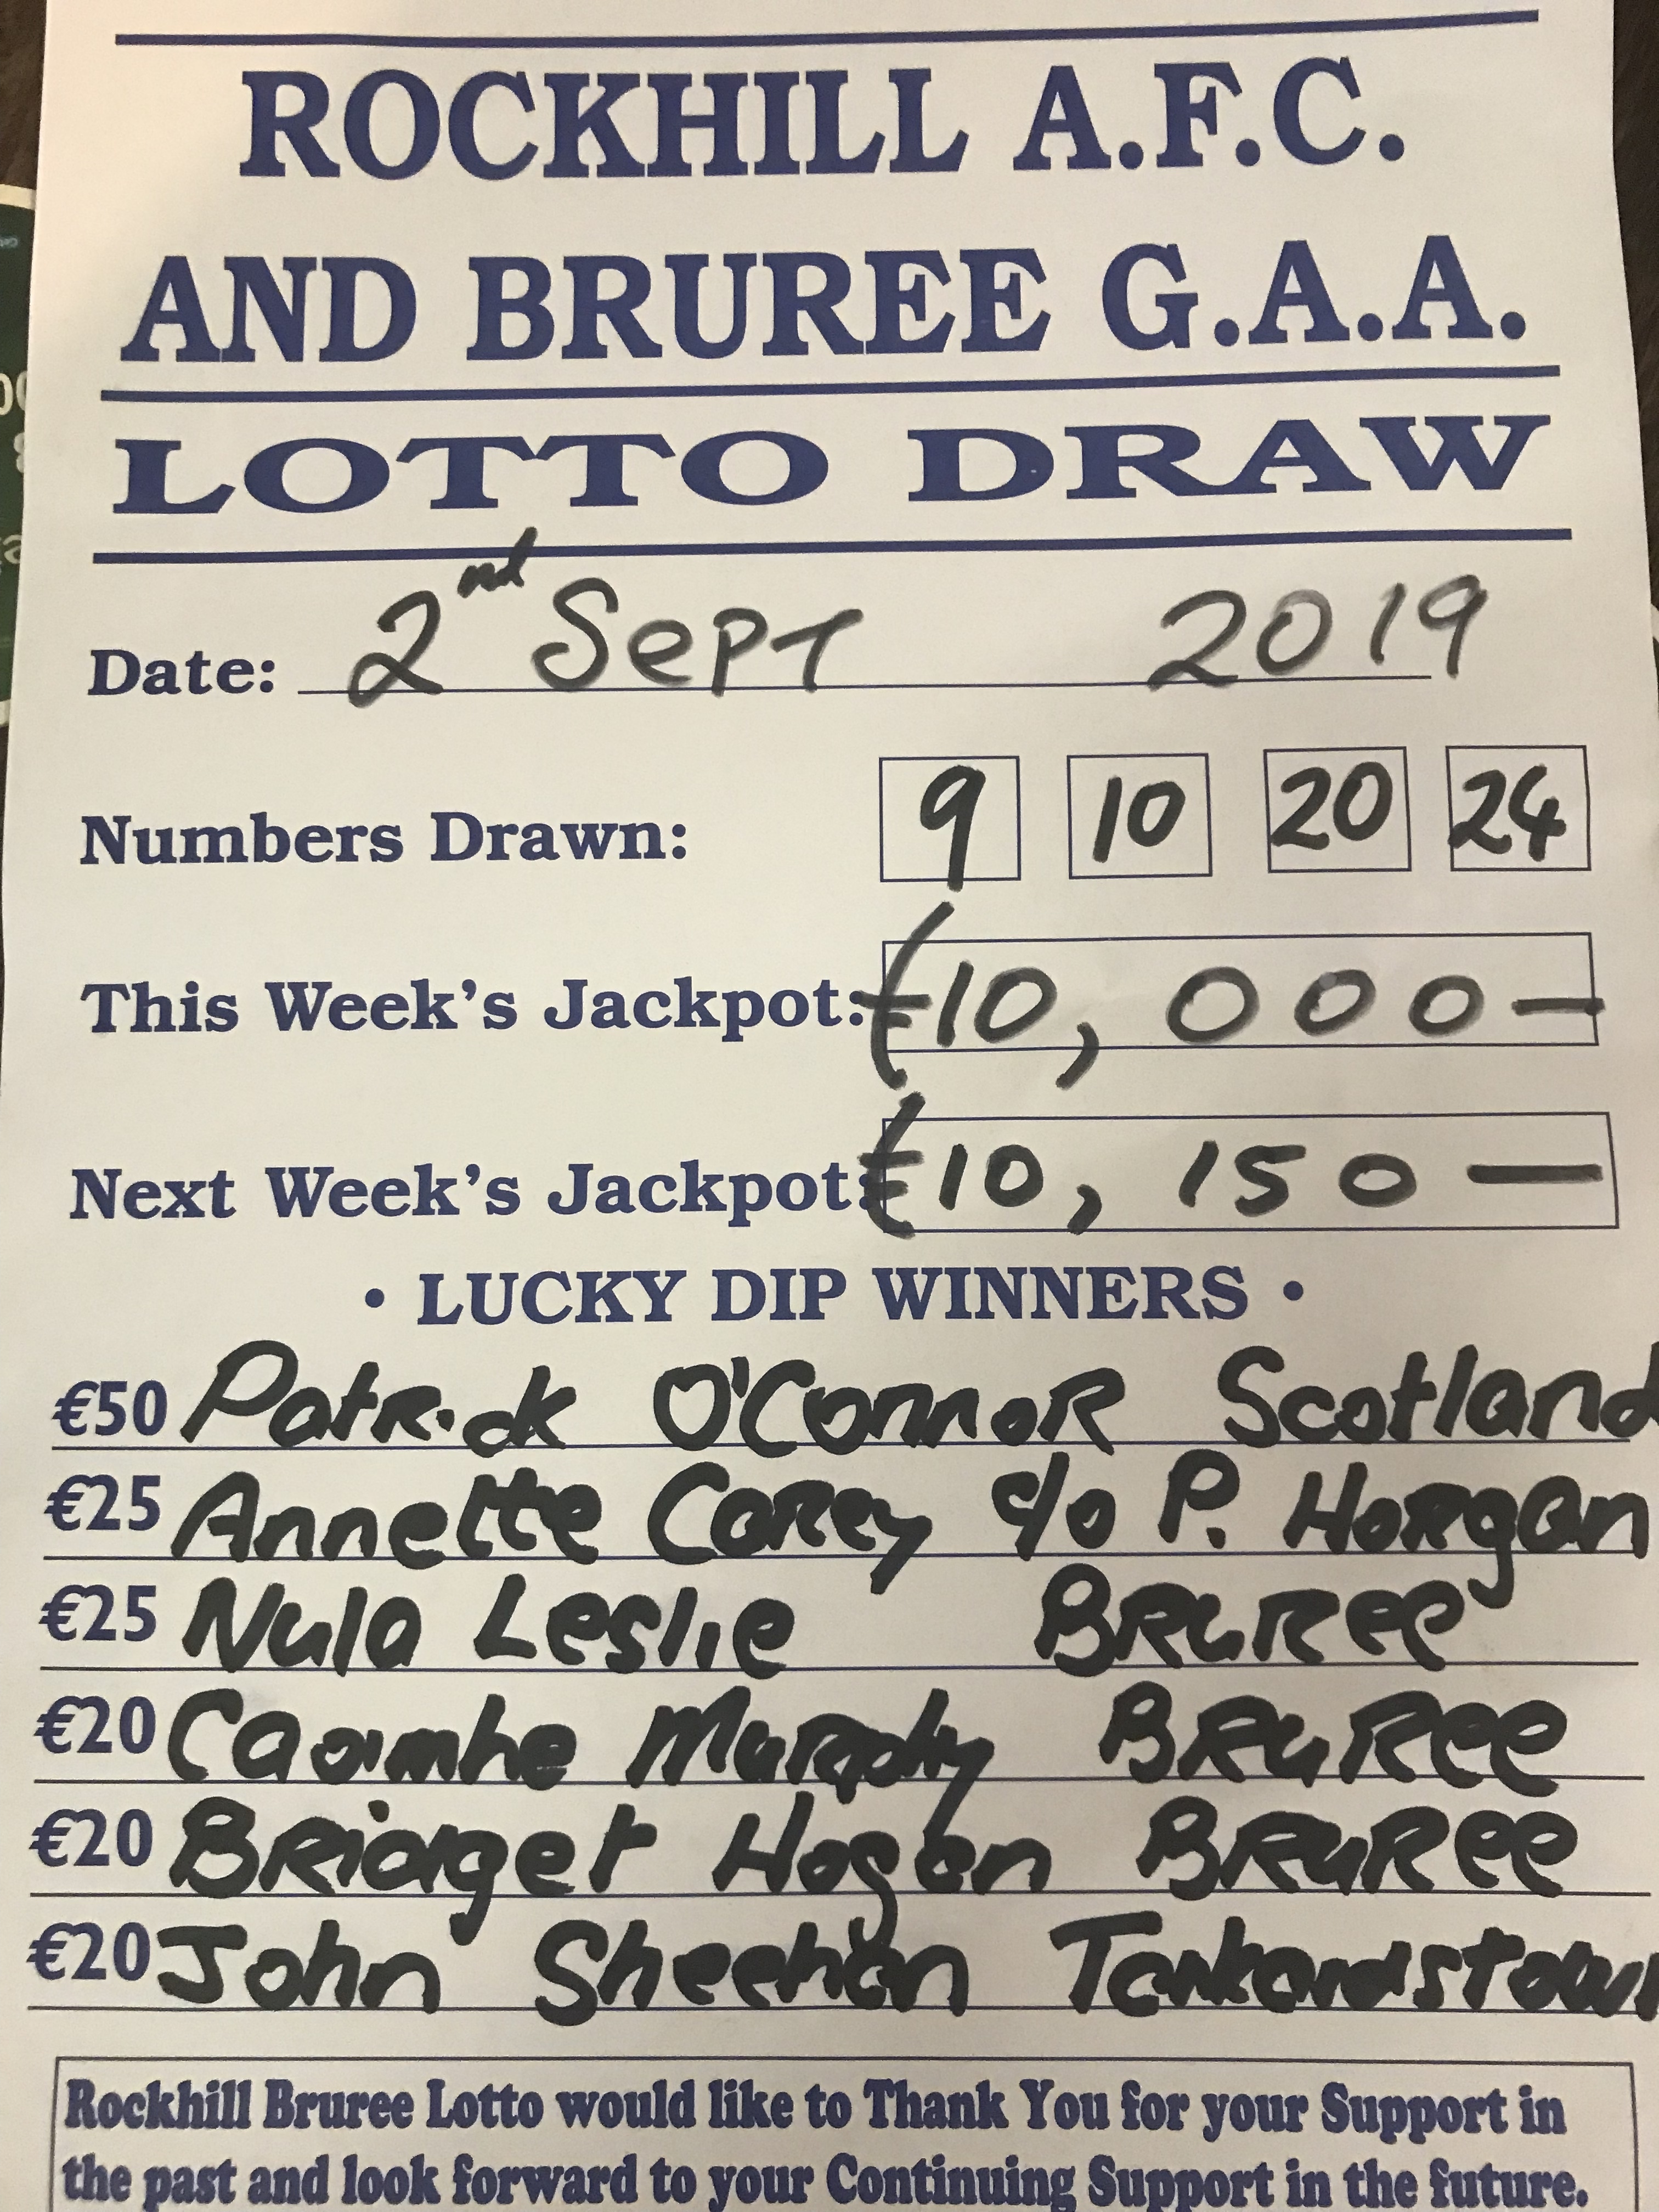 ROCKHILL A.F.C.
AND BRUREE G.A.A.
LOTTO DRAW
Date: 2nd Sept 2019
Numbers Drawn: 9 10 20 24
This Week's Jackpot: €10,000—
Next Week's Jackpot: €10,150—
• LUCKY DIP WINNERS •
€50 Patrick O'Connor Scotland
€25 Annette Carey c/o P. Horgan
€25 Nula Leslie Bruree
€20 Caoimhe Murphy Bruree
€20 Bridget Hogan Bruree
€20 John Sheehan Tankardstown
Rockhill Bruree Lotto would like to Thank You for your Support in
the past and look forward to your Continuing Support in the future.